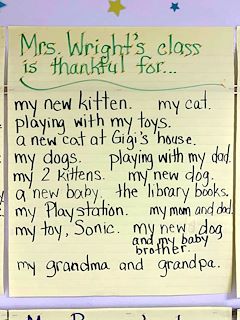 Mrs. Wright's class
is thankful for...
my new kitten. my cat.
playing with my toys.
a new cat at Gigi's house.
my dogs. playing with my dad.
my 2 kittens. my new dog.
a new baby. the library books.
my Playstation. my mom and dad.
my toy, Sonic. my new dog
and my baby
brother.
my grandma and grandpa.